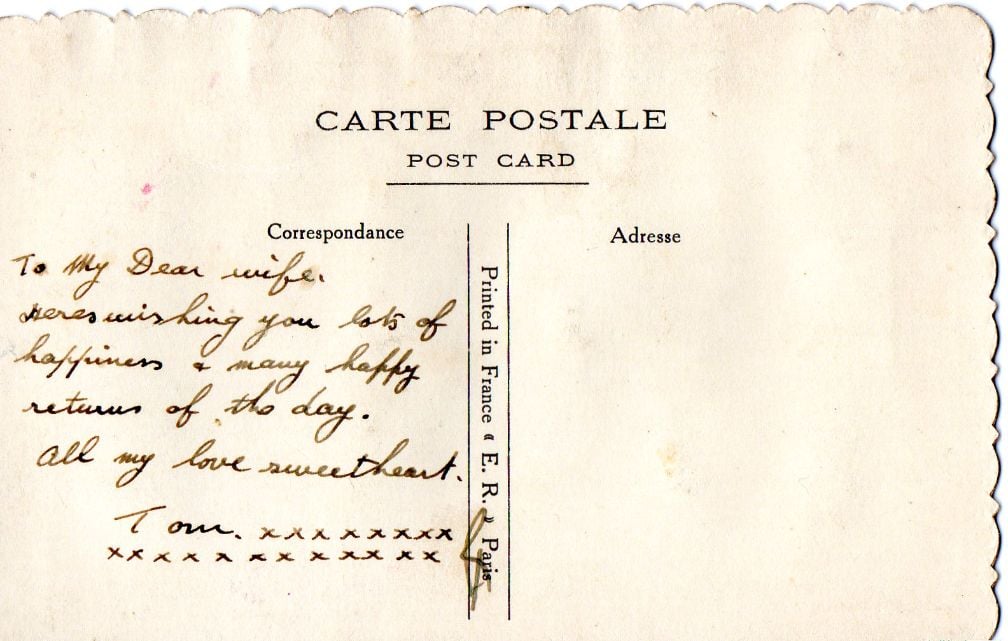 CARTE POSTALE
POST CARD
Correspondance
Adresse
To My Dear wife.
Heres wishing you lots of
happiness & many happy
returns of the day.
All my love sweetheart.
Tom. x x x x x x x x
x x x x x x x x x x x x
Printed in France « E. R. » Paris